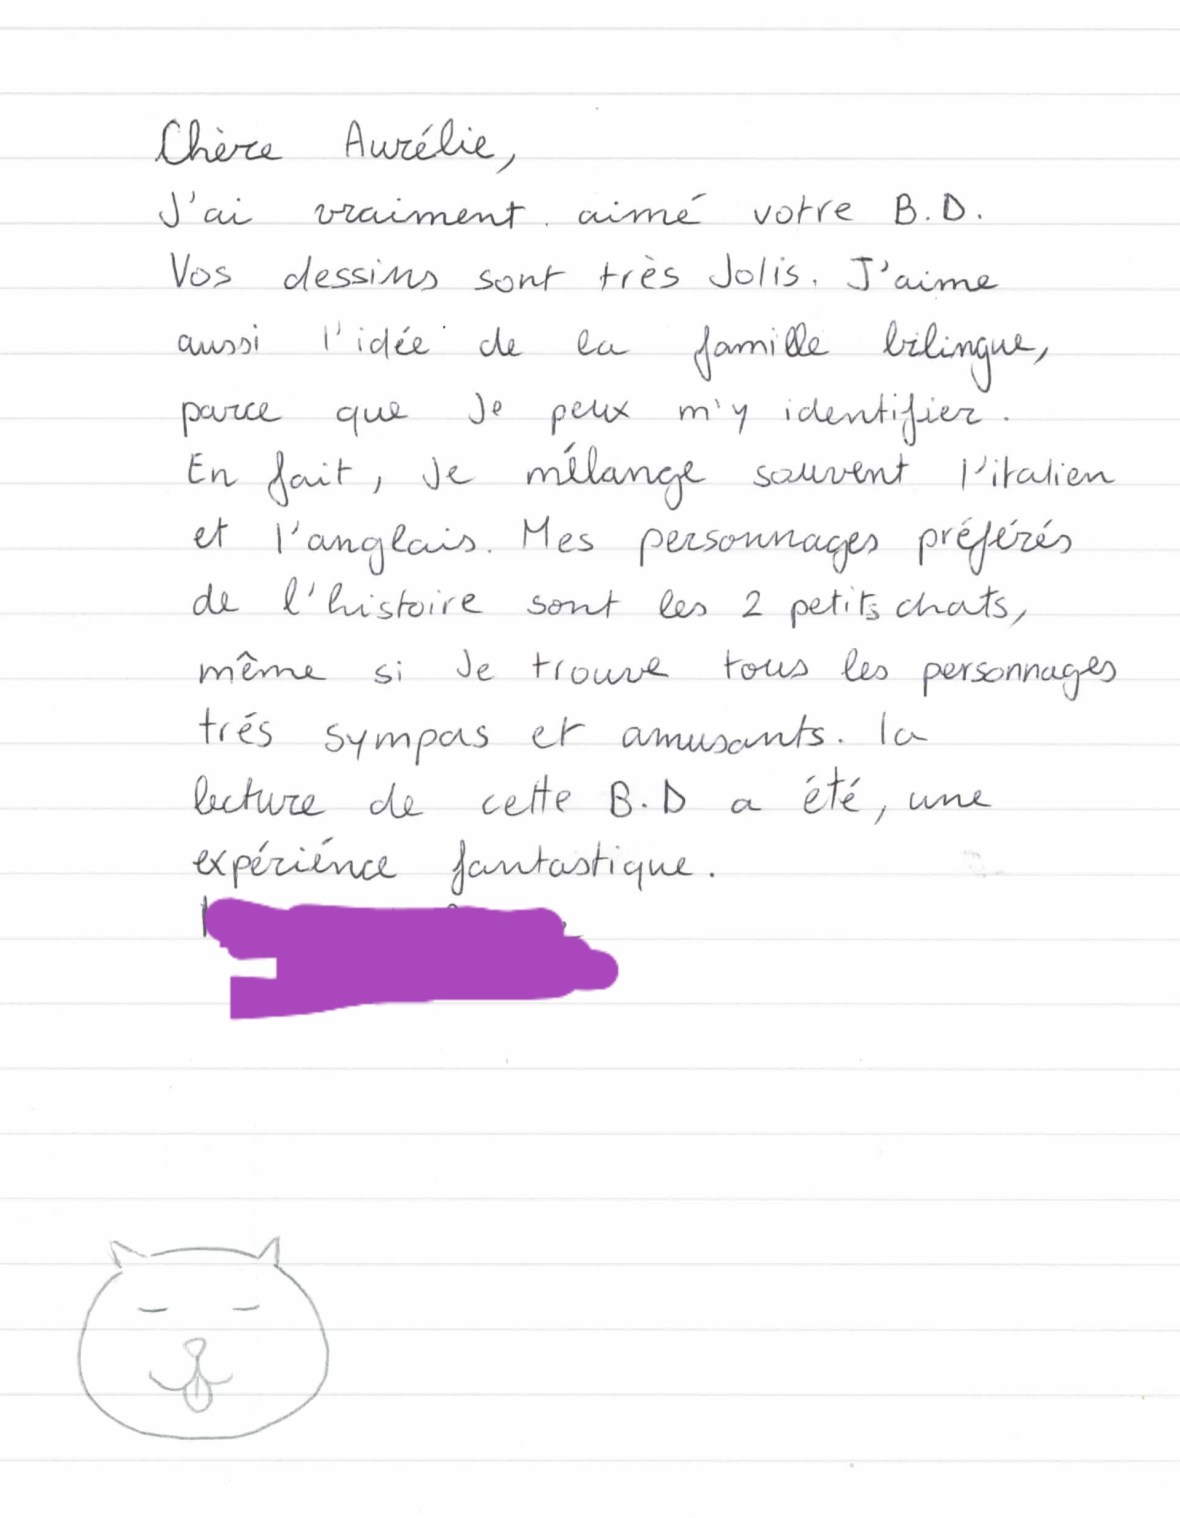 Chère Aurélie,
J'ai vraiment aimé votre B.D.
Vos dessins sont très Jolis. J'aime
aussi l'idée de la famille bilingue,
parce que Je peux m'y identifier.
En fait, Je mélange souvent l'italien
et l'anglais. Mes personnages préférés
de l'histoire sont les 2 petits chats,
même si Je trouve tous les personnages
trés sympas et amusants. la
lecture de cette B.D a été, une
expériénce fantastique.